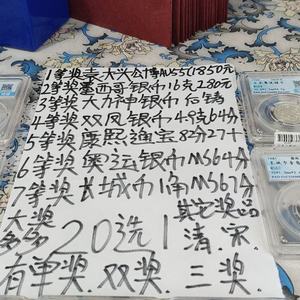 1等奖袁大头公博AU55(1850元
2等奖墨西哥银币16克280元
3等奖大力神银币后铸
4等奖双凤银币4.9克64分
5等奖康熙通宝82分27+
6等奖奥运银币MS64分
7等奖长城币1角MS67分
大奖 其它奖品
多多 20选1 清.宋.
有单奖.双奖.三奖.